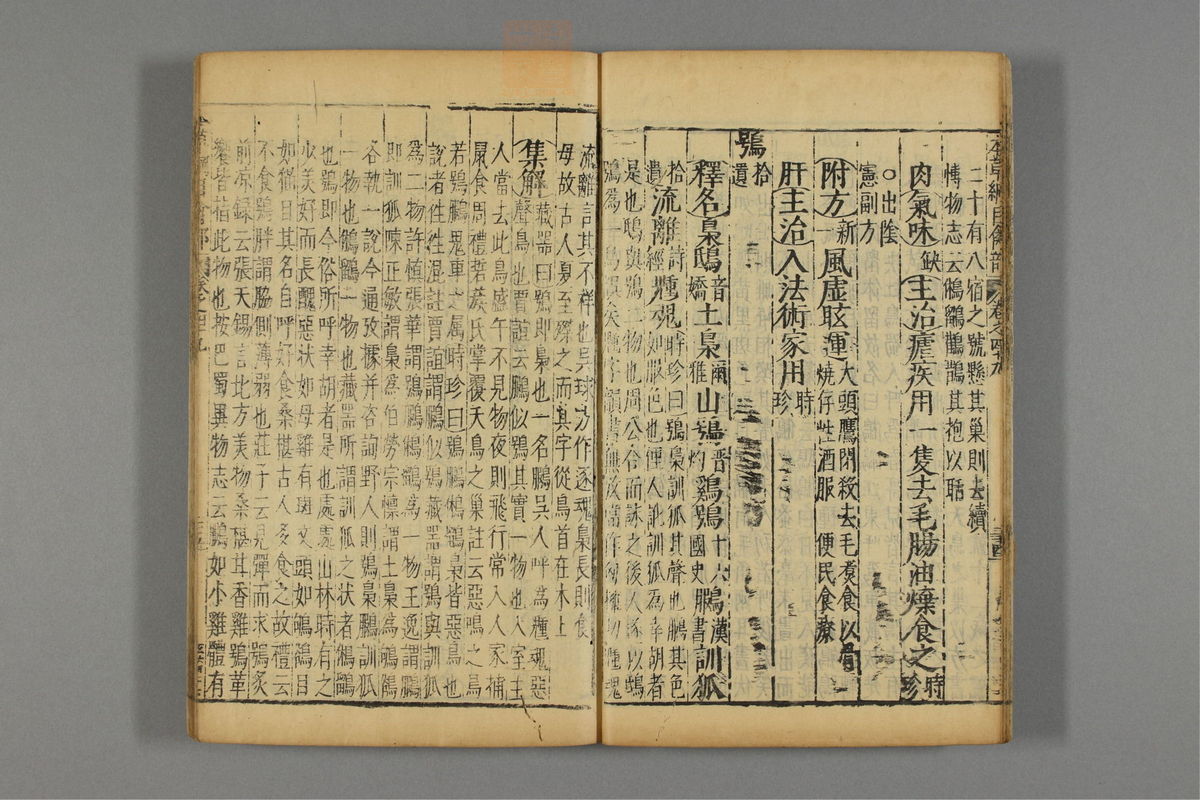 本草綱目禽部 卷之四十九
二十有八宿之號懸其巢則去續
博物志云鵂鶹鸛鵲其抱以聒
肉氣味缺主治瘧疾用一隻去毛腸油煠食之時珍
○出陰
憲副方
附方新一風虛眩運大頭鷹閉殺去毛煮食以骨燒存性酒服 便民食療
肝主治入法術家用時珍
鴞拾遺
釋名梟鴟音嬌土梟爾雅山鴞晉灼雞鴞十六國史鵩漢書訓狐
拾遺流離詩經魂時珍曰鴞梟訓狐其聲也鵩其色
如服色也俚人訛訓狐為幸胡者
是也鴟與鴞二物也周公合而詠之後人遂以鴟
鴞為一鳥誤矣字韻書無考當作魂
流離言其不祥也吳球方作逐魂梟長則食
母故古人夏至磔之而其字從鳥首在木上
集解藏器曰鴞即梟也一名鵩吳人呼為魂惡
聲鳥也賈誼云鵩似鴞其實一物也入室主
人當去此鳥盛午不見物夜則飛行常入人家捕
鼠食周禮硩蔟氏掌覆夭鳥之巢註云惡鳴之鳥
若鴞鵩鬼車之屬時珍曰鴞鵩鵂鶹梟皆惡鳥也
說者往往混註賈誼謂鵩似鴞藏器謂鴞與訓狐
為二物許慎張華謂鴞鵩鵂鶹為一物王逸謂鵩
即訓狐陳正敏謂梟為伯勞宗懍謂土梟為鴝鵒
各執一說今通攷據并咨詢野人則鴞梟鵩訓狐
一物也鵂鶹一物也藏器所謂訓狐之狀者鵂鶹
也鴞即今俗所呼幸胡者是也處處山林時有之
少美好而長醜惡狀如母雞有斑文頭如鴝目
如貓目其名自呼好食桑椹古人多食之故禮云
不食鴞胖謂脇側薄弱也莊子云見彈而求鴞炙
前涼録云張天錫言北方美物桑椹甘香雞鴞革
饗皆指此物也按巴蜀異物志云鵩如小雞體有